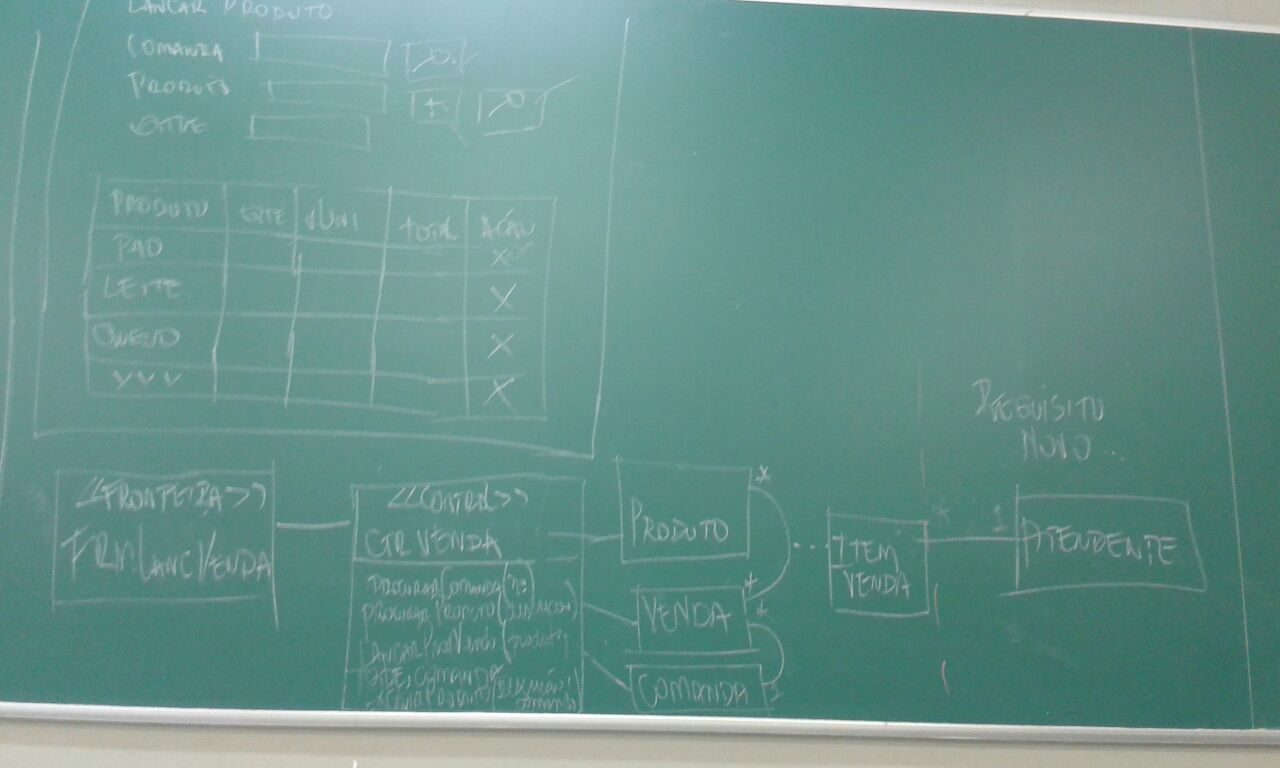 LANCAR PRODUTO
COMANDA
PRODUTO
QTDE
+
PRODUTO QTE VUNI TOTAL AÇÃO
PAO X
LEITE X
QUEIJO X
YVV X
REQUISITO
NOVO...
<<FRONTEIRA>>
FRMLANCVENDA
<<CONTROL>>
CTRVENDA
PROCURARCOMANDA(Nº)
PROCURARPRODUTO
LANCARPRODVENDA(PRODUTO,
QTDE, COMANDA
PRODUTO
*
VENDA
*
*
COMANDA
1
...
ITEM
VENDA
*
1
ATENDENTE